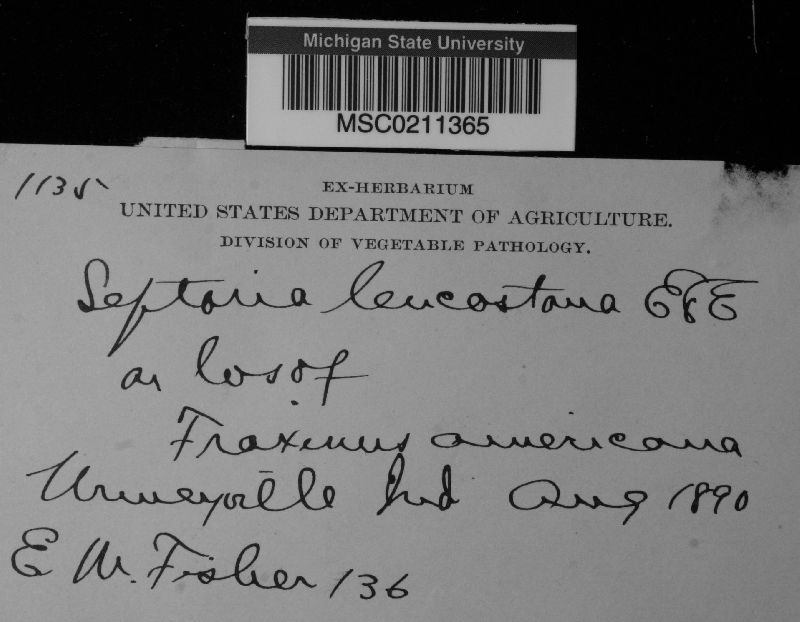 Michigan State University
MSC0211365
1135
EX-HERBARIUM
UNITED STATES DEPARTMENT OF AGRICULTURE.
DIVISION OF VEGETABLE PATHOLOGY.
Septoria leucostoma E&E
on lvs of
Fraxinus americana
Urmeyville Ind Aug 1890
E M. Fisher 136